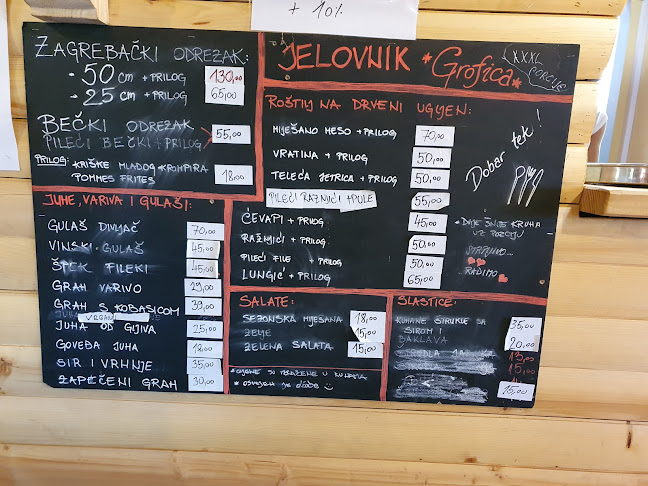 + 10%
ZAGREBAČKI ODREZAK:
- 50 cm + PRILOG 130,00
- 25 cm + PRILOG 65,00
BEČKI ODREZAK
PILEĆI BEČKI + PRILOG 55,00
PRILOG: KRIŠKE MLADOG KROMPIRA
POMMES FRITES 18,00
JUHE, VARIVA I GULAŠI:
GULAŠ DIVLJAČ 70,00
VINSKI GULAŠ 45,00
ŠPEK FILEKI 45,00
GRAH VARIVO 29,00
GRAH S KOBASICOM 39,00
JUHA OD GLJIVA 25,00
GOVEĐA JUHA 18,00
SIR I VRHNJE 35,00
ZAPEČENI GRAH 30,00
JELOVNIK *Grofica*
XXXL
PORCIJE
ROŠTILJ NA DRVENI UGLJEN:
MIJEŠANO MESO + PRILOG 70,00
VRATINA + PRILOG 50,00
TELEĆA JETRICA + PRILOG 50,00
PILEĆI RAŽNJIĆI + PRILOG 55,00
ĆEVAPI + PRILOG 45,00
RAŽNJIĆI + PRILOG 50,00
PILEĆI FILE + PRILOG 50,00
LUNGIĆ + PRILOG 65,00
Dobar tek!
UZ PORCIJU
RADIMO
SALATE:
SEZONSKA MIJEŠANA 18,00
ZELJE 15,00
ZELENA SALATA 15,00
SLASTICE:
KUHANE ŠTRUKLE SA
SIROM 35,00
BAKLAVA 20,00
15,00
15,00